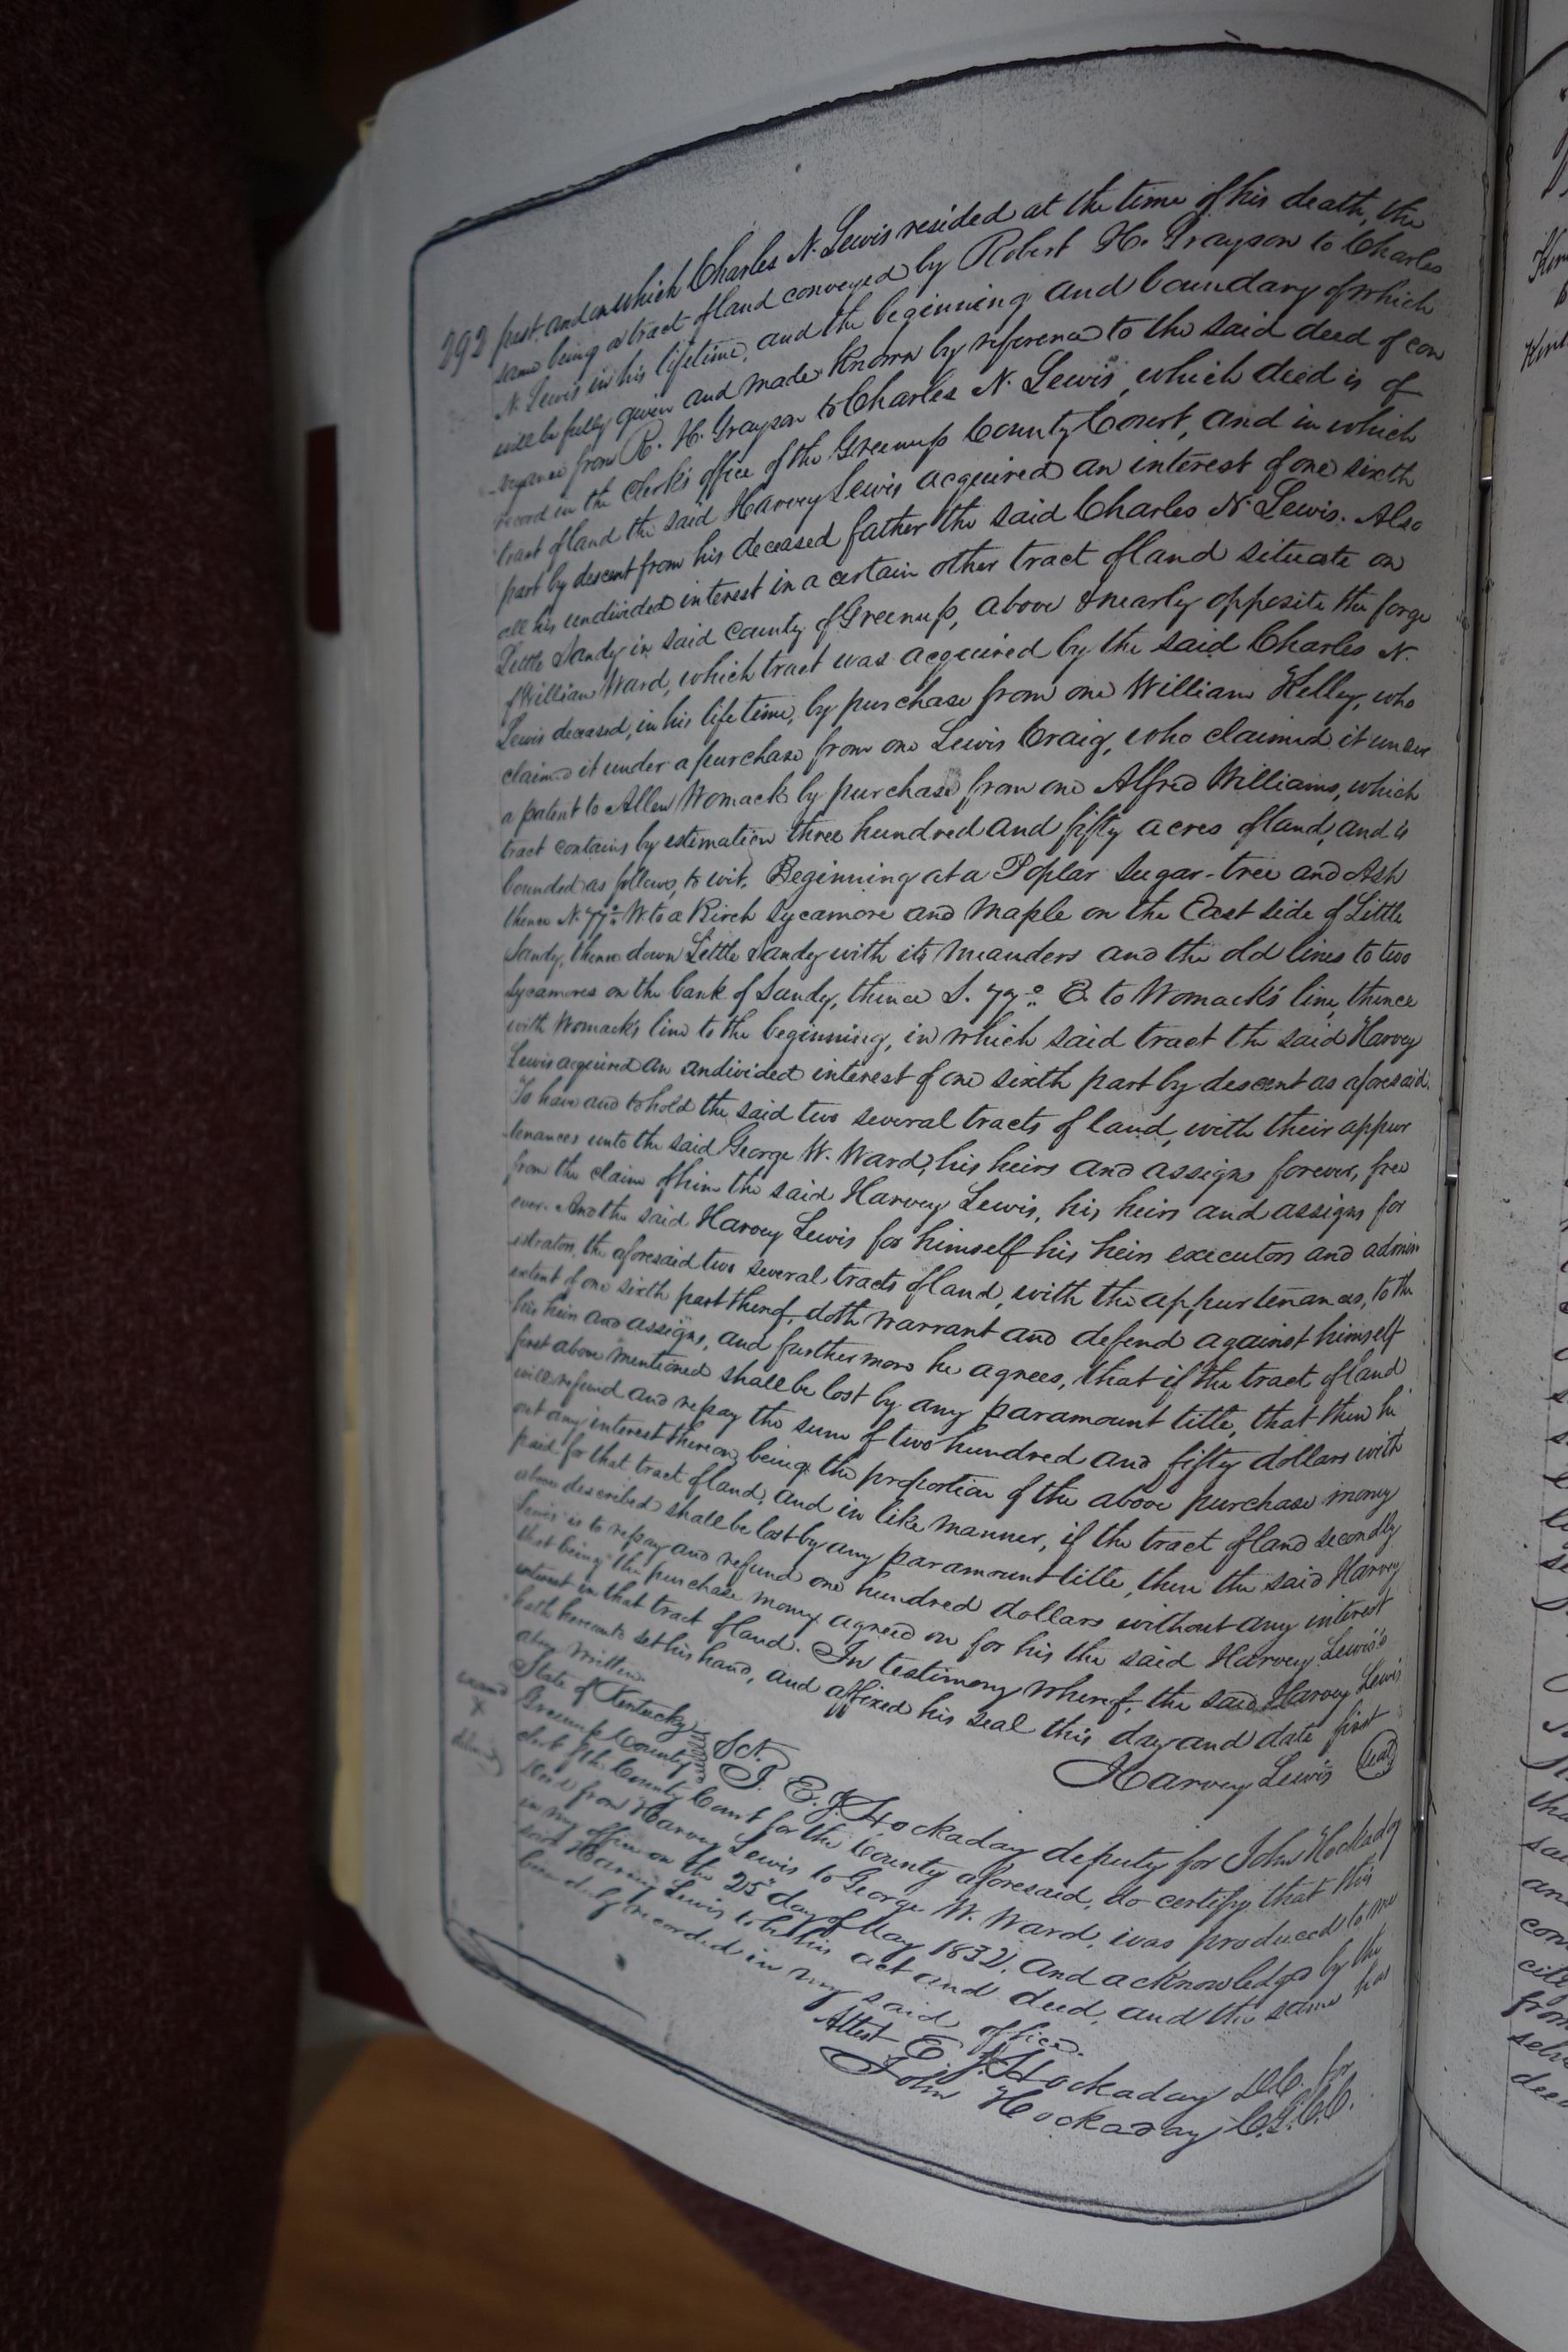 292 part, and on which Charles N. Lewis resided at the time of his death, the
same being a tract of land conveyed by Robert H. Grayson to Charles
N. Lewis in his lifetime, and the beginning and boundary of which
will be fully given and made known by reference to the said deed of con
veyance from R. H. Grayson to Charles N. Lewis, which deed is of
record in the clerk's office of the Greenup County Court, and in which
tract of land the said Harvey Lewis acquired an interest of one sixth
part by descent from his deceased father the said Charles N. Lewis. Also
all his undivided interest in a certain other tract of land situate on
Little Sandy in said county of Greenup, above & nearly opposite the forge
of William Ward, which tract was acquired by the said Charles N.
Lewis deceased, in his life time, by purchase from one William Kelley, who
claimed it under a purchase from one Lewis Craig, who claimed it under
a patent to Allen Womack by purchase from one Alfred Williams, which
tract contains by estimation three hundred and fifty acres of land, and is
bounded as follows, to wit, Beginning at a Poplar Sugar-tree and Ash
thence N. 77° W to a Birch Sycamore and Maple on the East side of Little
Sandy, thence down Little Sandy with its meanders and the old lines to two
Sycamores on the bank of Sandy, thence S. 77° E. to Womack's line, thence
with Womack's line to the beginning, in which said tract the said Harvey
Lewis acquired an undivided interest of one sixth part by descent as aforesaid.
To have and to hold the said two several tracts of land, with their appur
tenances unto the said George W. Ward, his heirs and assigns forever, free
from the claim of him the said Harvey Lewis, his heirs and assigns for
ever. And the said Harvey Lewis for himself his heirs executors and admin
istrators, the aforesaid two several tracts of land, with the appurtenances, to the
extent of one sixth part thereof, doth warrant and defend against himself
his heirs and assigns, and furthermore he agrees, that if the tract of land
first above mentioned shall be lost by any paramount title, that then he
will refund and repay the sum of two hundred and fifty dollars with
out any interest thereon, being the proportion of the above purchase money
paid for that tract of land, and in like manner, if the tract of land secondly
above described shall be lost by any paramount title, then the said Harvey
Lewis is to repay and refund one hundred dollars without any interest
that being the purchase money agreed on for his the said Harvey Lewis's
interest in that tract of land. In testimony whereof, the said Harvey Lewis
hath hereunto set his hand, and affixed his seal this day and date first
above written.
Harvey Lewis Seal
State of Kentucky
Greenup County Sct.
I. E. J. Hockaday deputy for John Hockaday
clerk of the County Court for the County aforesaid, do certify that this
Deed from Harvey Lewis to George W. Ward, was produced to me
in my office on the 25th day of May 1832, and acknowledged by the
said Harvey Lewis to be his act and deed, and the same has
been duly recorded in my said office.
Attest E. J. Hockaday D.C. for
John Hockaday C.G.C.C.